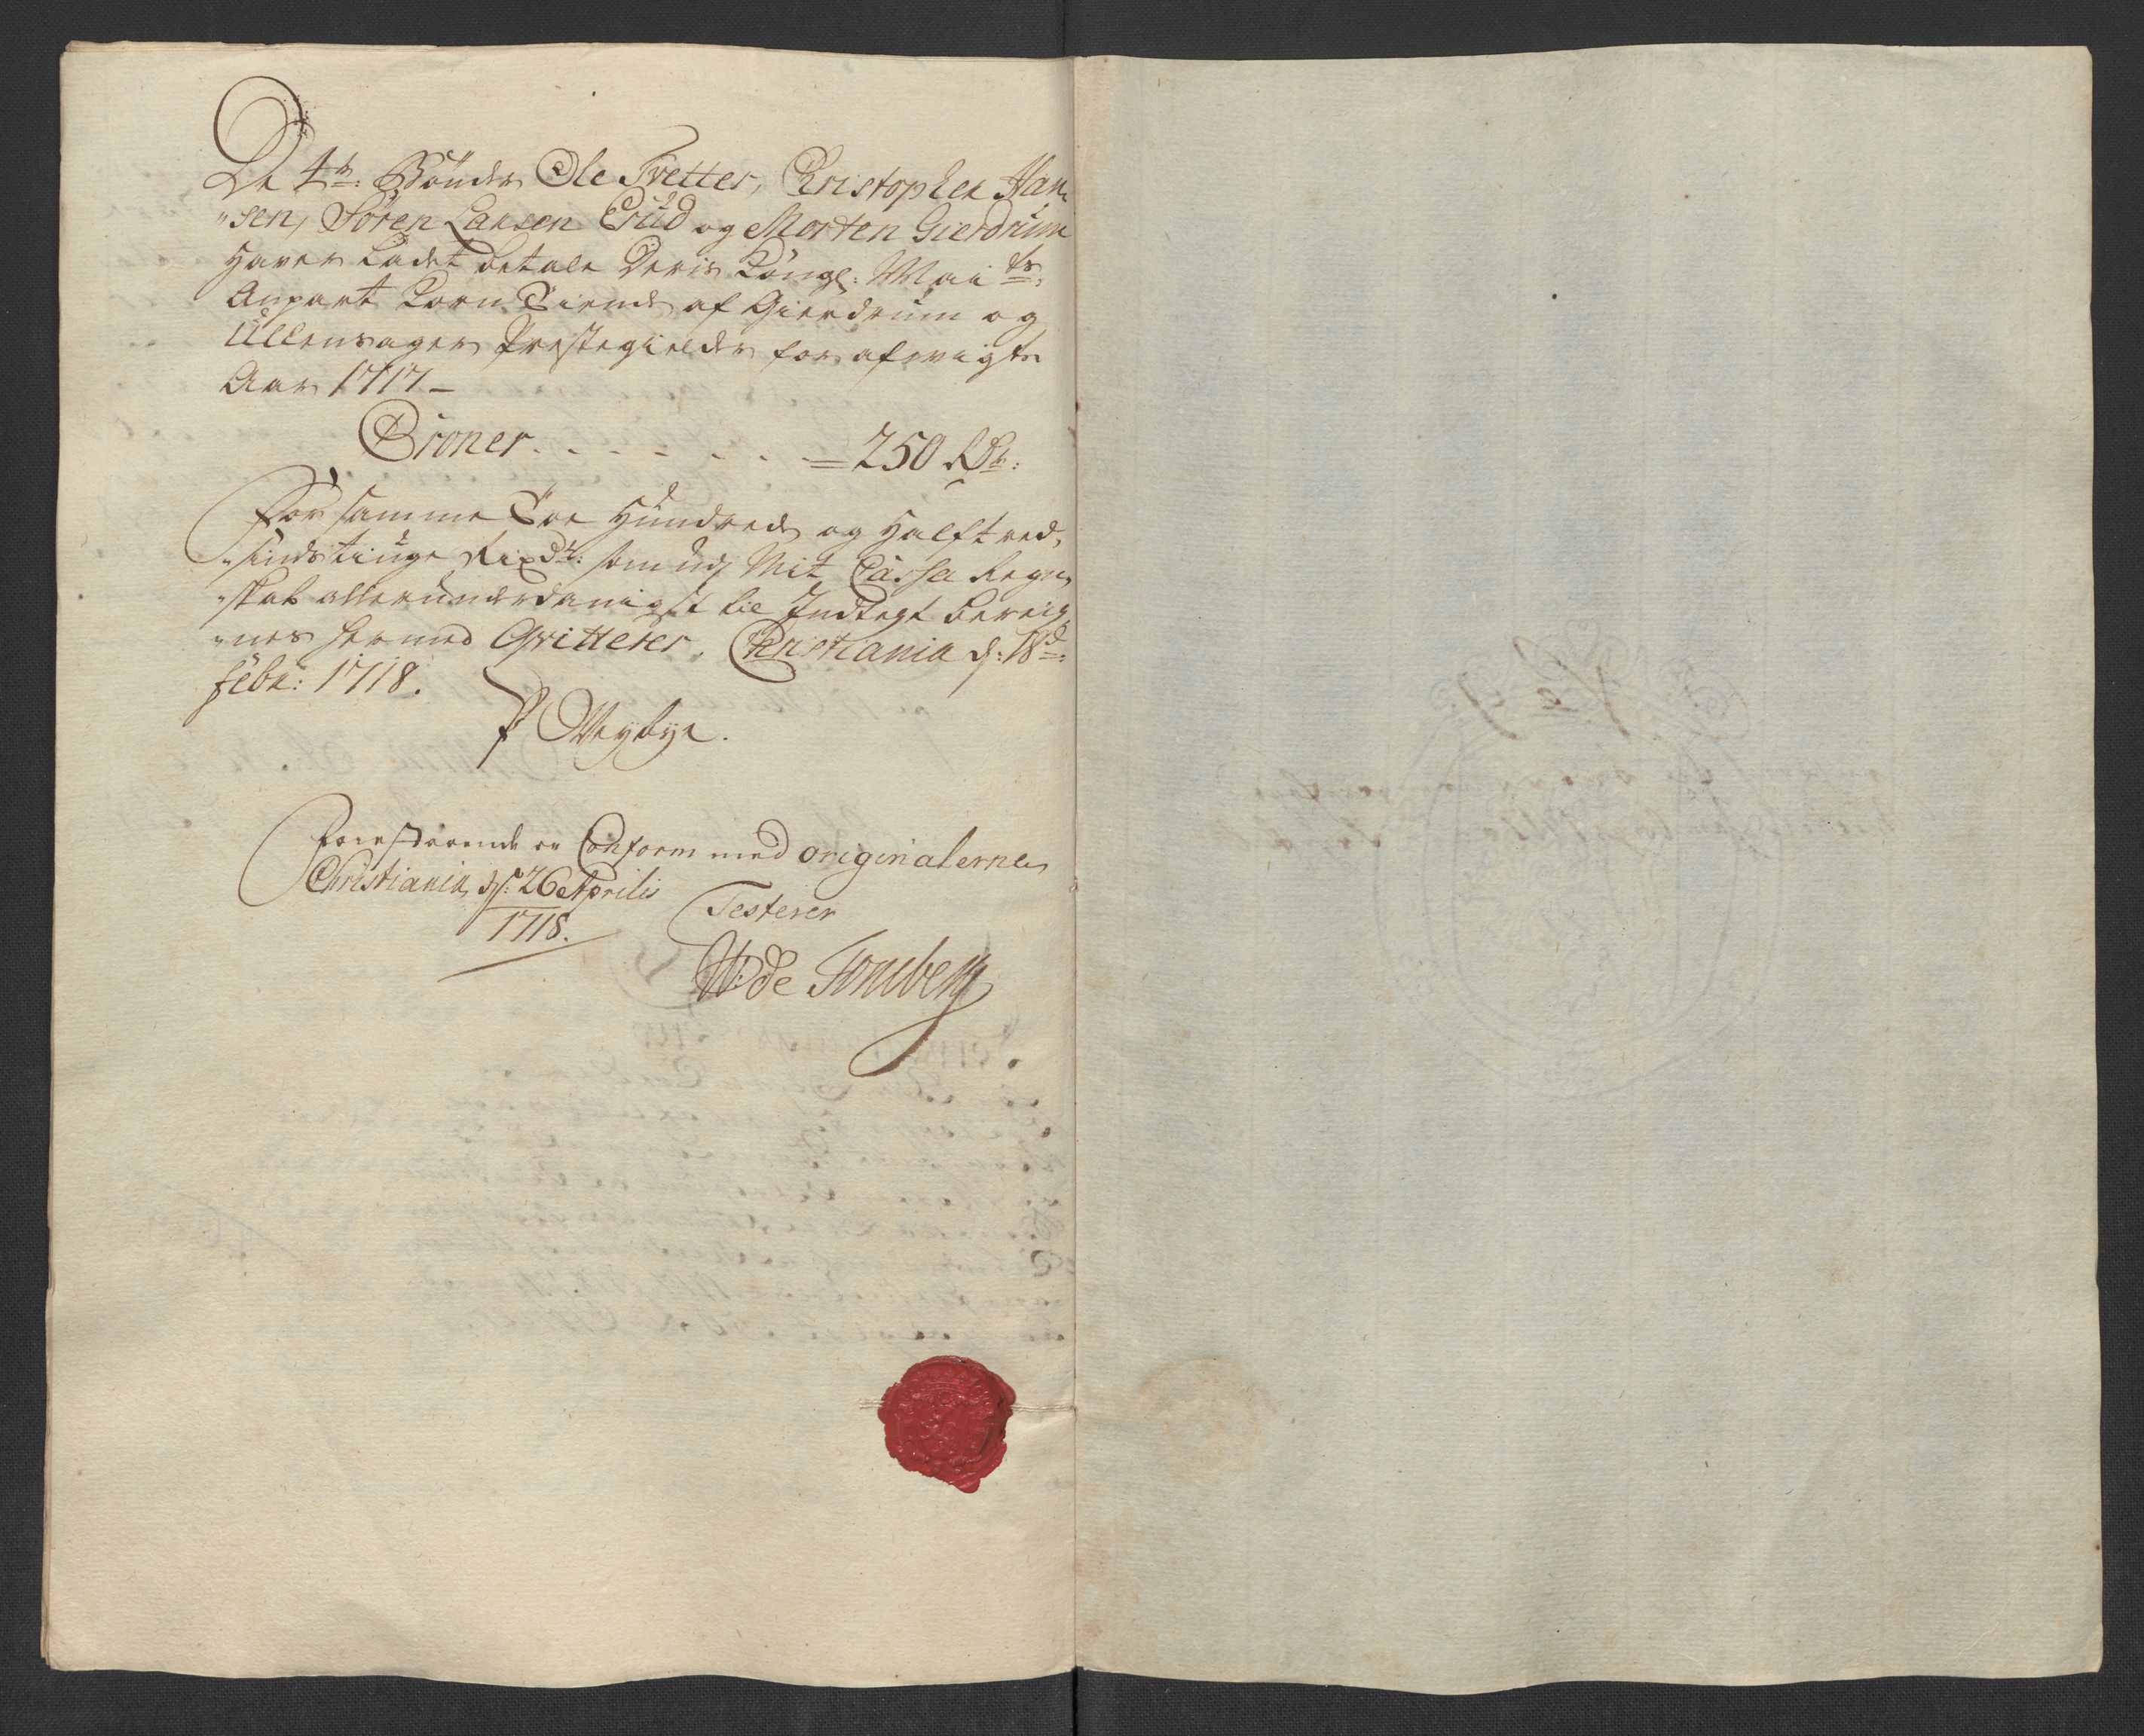 De 4re: Bønder Ole Tvetter, Christopher Han-
"sen, Søren Larsen Erud og Morten Gierdrum
Haver Ladet betale Deris Kongl: Mai ts:
Anpart Korn Tiende af Gierdrum og
Ullensager Prestegielder for afvigte
Aar 1717 -
Croner . . . . . . . = 250 Rdr:
For samme Toe Hundrede og Halftred,
"sindstiuge Rixdr: som udj Mit Cassa Regn,
"skab allerunderdanigst til Indtegt bereig,
"nes hermed Qvitterer, Christiania d: 18de:
Febr: 1718.
P Weybye.
Forestaaende er Conform med originalerne
Christiania, ds: 26 Aprilis
1718.
Testerer
W: de Tonsberg